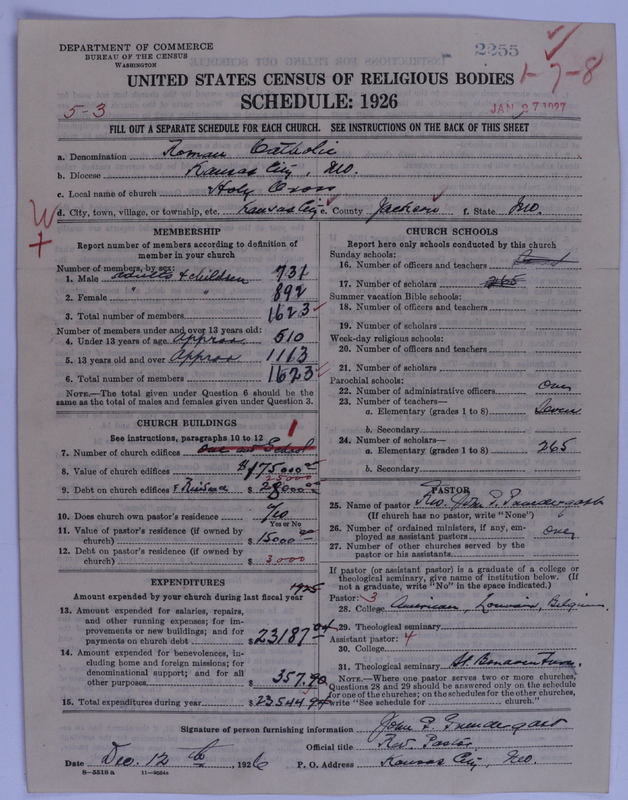 DEPARTMENT OF COMMERCE
BUREAU OF THE CENSUS
WASHINGTON
2255
UNITED STATES CENSUS OF RELIGIOUS BODIES
1-7-8
SCHEDULE: 1926
5-3
JAN 27 1927
FILL OUT A SEPARATE SCHEDULE FOR EACH CHURCH. SEE INSTRUCTIONS ON THE BACK OF THIS SHEET
a. Denomination Roman Catholic
b. Diocese Kansas City, Mo.
c. Local name of church Holy Cross
d. City, town, village, or township, etc. Kansas City e. County Jackson f. State Mo.
MEMBERSHIP
Report number of members according to definition of member in your church
Number of members, by sex:
1. Male adults & children 731
2. Female " " 892
3. Total number of members 1623
Number of members under and over 13 years old:
4. Under 13 years of age Approx 510
5. 13 years old and over Approx 1113
6. Total number of members 1623
NOTE.—The total given under Question 6 should be the same as the total of males and females given under Question 3.
CHURCH BUILDINGS
See instructions, paragraphs 10 to 12
7. Number of church edifices One and School 1
8. Value of church edifices $175000.00
25000
9. Debt on church edifices & Residence $28000.00
10. Does church own pastor's residence Yes
Yes or No
11. Value of pastor's residence (if owned by church) $15000.00
12. Debt on pastor's residence (if owned by church) $3000
EXPENDITURES
Amount expended by your church during last fiscal year 1925
13. Amount expended for salaries, repairs, and other running expenses; for improvements or new buildings; and for payments on church debt $23187.04
14. Amount expended for benevolences, including home and foreign missions; for denominational support; and for all other purposes $357.90
15. Total expenditures during year $23544.94
CHURCH SCHOOLS
Report here only schools conducted by this church
Sunday schools:
16. Number of officers and teachers
17. Number of scholars 265
Summer vacation Bible schools:
18. Number of officers and teachers
19. Number of scholars
Week-day religious schools:
20. Number of officers and teachers
21. Number of scholars
Parochial schools:
22. Number of administrative officers one
23. Number of teachers—
a. Elementary (grades 1 to 8) Seven
b. Secondary
24. Number of scholars—
a. Elementary (grades 1 to 8) 265
b. Secondary
PASTOR
25. Name of pastor Rev. John P. Prendergast
(If church has no pastor, write "None")
26. Number of ordained ministers, if any, employed as assistant pastors one
27. Number of other churches served by the pastor or his assistants
If pastor (or assistant pastor) is a graduate of a college or theological seminary, give name of institution below. (If not a graduate, write "No" in the space indicated.)
Pastor: 3
28. College American, Louvain, Belgium
29. Theological seminary
Assistant pastor: 4
30. College
31. Theological seminary St. Bonaventure
NOTE.—Where one pastor serves two or more churches, Questions 28 and 29 should be answered only on the schedule for one of the churches; on the schedules for the other churches, write "See schedule for church."
Signature of person furnishing information John P. Prendergast
Official title Rev. Pastor
Date Dec. 12, 1926 P. O. Address Kansas City, Mo.
8-5518 a